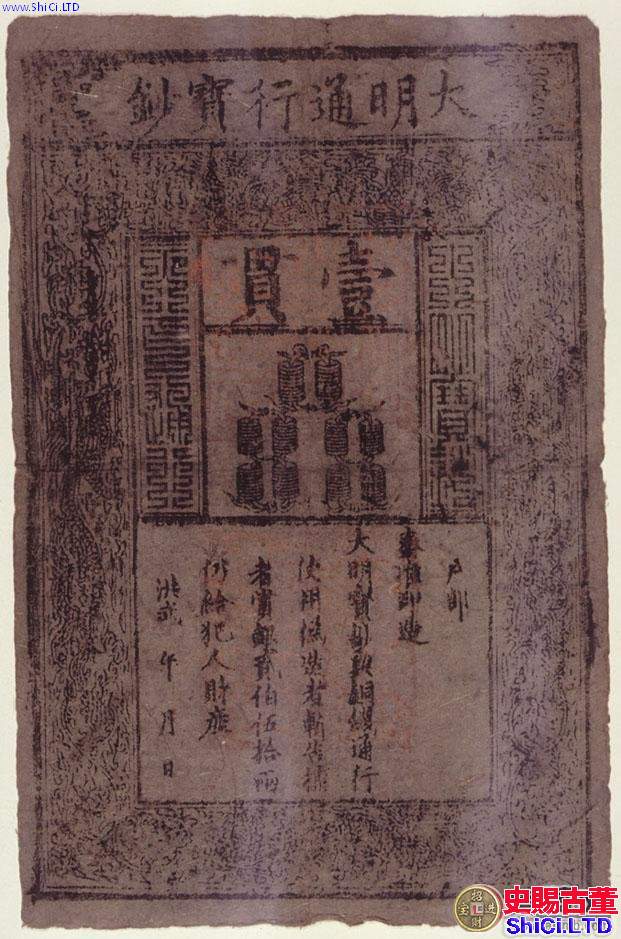 www.ShiCi.LTD
大明通行寶鈔
壹貫
戶部
奏准印造
大明寶鈔與銅錢通行
使用偽造者斬告捕
者賞銀貳伯伍拾兩
仍給犯人財産
洪武 年 月 日
招財進宝
史賜古董
ShiCi.LTD